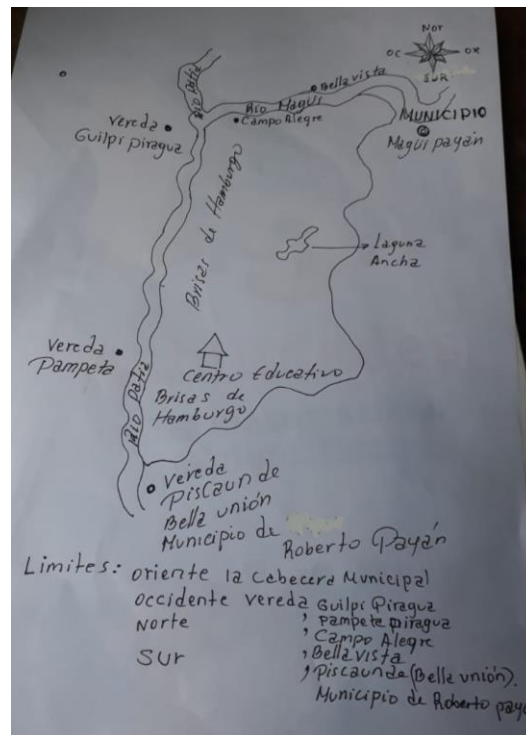 Nor
OC
OR
SUR
Río Patía
Río Magüi
Bella vista
Campo Alegre
MUNICIPIO
Magüi payán
Vereda
Guilpi piragua
Brisas de Hamburgo
Laguna
Ancha
Vereda
Pampeta
Río Patía
Centro Educativo
Brisas de
Hamburgo
Vereda
Piscaun de
Bella unión
Municipio de
Roberto Payán
Limites: oriente la Cabecera Municipal
occidente vereda Guilpi Piragua
, pampeta piragua
Norte , Campo Alegre
, Bella vista
Sur , Piscaunde (Bella unión).
Municipio de Roberto paya